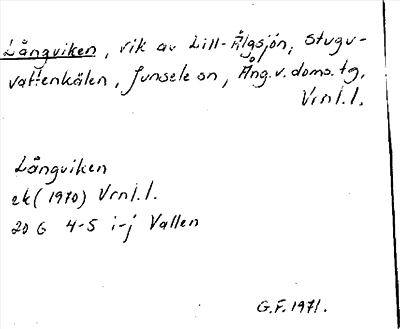 Långviken, vik av Lill-Älgsjön, Stugu-
vattenkälen, Junsele sn, Ång.v.doms.tg,
Vrnl.l.
Långviken
ek (1970) Vrnl.l.
20 G 4-5 i-j Vallen
G.F. 1971.